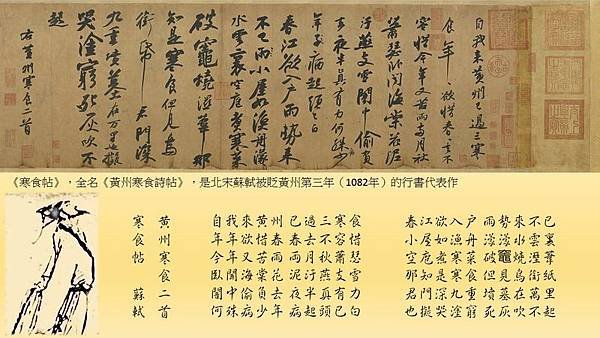 自我來黃州已過三寒
食年、欲惜春、去不
容惜今年又苦雨兩月秋
蕭瑟臥聞海棠花泥
汙燕支雪闇中偷負
去夜半真有力何殊少
年子病起頭已白
春江欲入戶雨勢來
不已雨小屋如漁舟濛濛
水雲裏空庖煮寒菜
破竈燒濕葦那
知是寒食但見烏
銜帋君門深
九重墳墓在萬里也擬
哭塗窮死灰吹不
起
右黃州寒食二首
《寒食帖》，全名《黃州寒食詩帖》，是北宋蘇軾被貶黃州第三年（1082年）的行書代表作
黃州寒食二首
寒食帖 蘇軾
自我來黃州已過三寒食
年年欲惜春春去不容惜
今年又苦雨兩月秋蕭瑟
臥聞海棠花泥汙燕支雪
闇中偷負去夜半真有力
何殊病少年病起頭已白
春江欲入戶雨勢來不已
小屋如漁舟濛濛水雲裏
空庖煮寒菜破竈燒濕葦
那知是寒食但見烏銜紙
君門深九重墳墓在萬里
也擬哭塗窮死灰吹不起